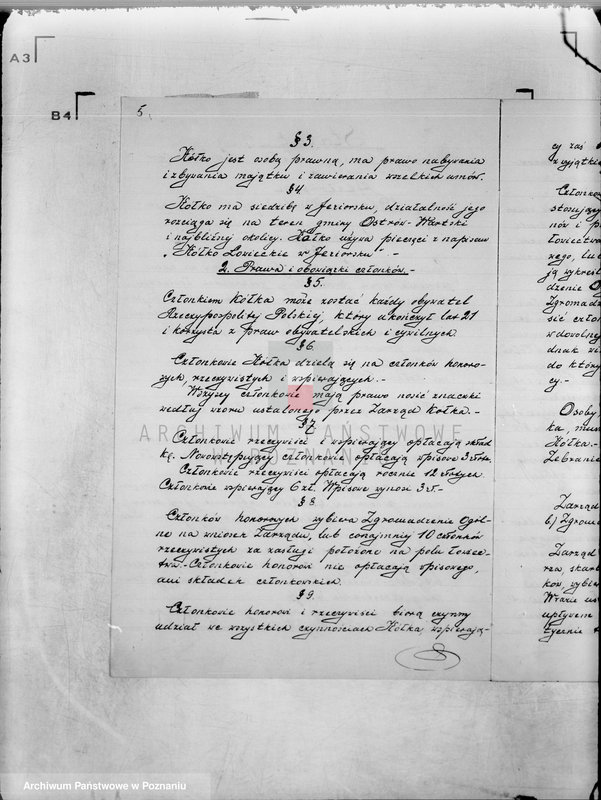 A3
B4
5.
§ 3.
Kółko jest osobą prawną, ma prawo nabywania
i zbywania majątku i zawierania wszelkich umów.
§ 4.
Kółko ma siedzibę w Jeziorsku, działalność jego
rozciąga się na teren gminy Ostrów-Wartski
i najbliżnej okolicy. Kółko używa pieczęci z napisem
„Kółko Łowieckie w Jeziorsku". -
2. Prawa i obowiązki członków. -
§ 5.
Członkiem Kółka może zostać każdy obywatel
Rzeczypospolitej Polskiej, który ukończył lat 21
i korzysta z praw obywatelskich i cywilnych.
§ 6.
Członkowie Kółka dzielą się na członków honoro-
wych, rzeczywistych i wspierających. -
Wszyscy członkowie mają prawo nosić znaczki
według wzoru ustalonego przez Zarząd Kółka. -
§ 7.
ARCHIWUM PAŃSTWOWE
W POZNANIU
Członkowie rzeczywiści i wspierający opłacają skład
kę. Nowowstępujący członkowie opłacają wpisowe 3
Członkowie rzeczywiści opłacają rocznie 12 złotych.
Członkowie wspierający 6 zł. Wpisowe wynosi 3 zł. -
§ 8.
Członków honorowych wybiera Zgromadzenie Ogól-
ne na wniosek Zarządu, lub conajmniej 10 członków
rzeczywistych za zasługi położone na polu łowiec-
twa. - Członkowie honorowi nie opłacają wpisowego,
ani składek członkowskich.
§ 9.
Członkowie honorowi i rzeczywiści biorą czynny
udział we wszystkich czynnościach Kółka, wspierają-
cy zaś
z wyjątkie
Członkow
stosując
nów i p
łowiectwa
nego, lu
ją wykreśl
dzenie O
Zgromadz
sić człon
w dowolny
dnak wi
do który
cy. -
Osoby
ka, mus
Kółka. -
Zebranie
Zarząd
b) Zgrom
Zarząd
rza, skarb
ków, wybie
Wrazie us
upływem
tycznie
Archiwum Państwowe w Poznaniu